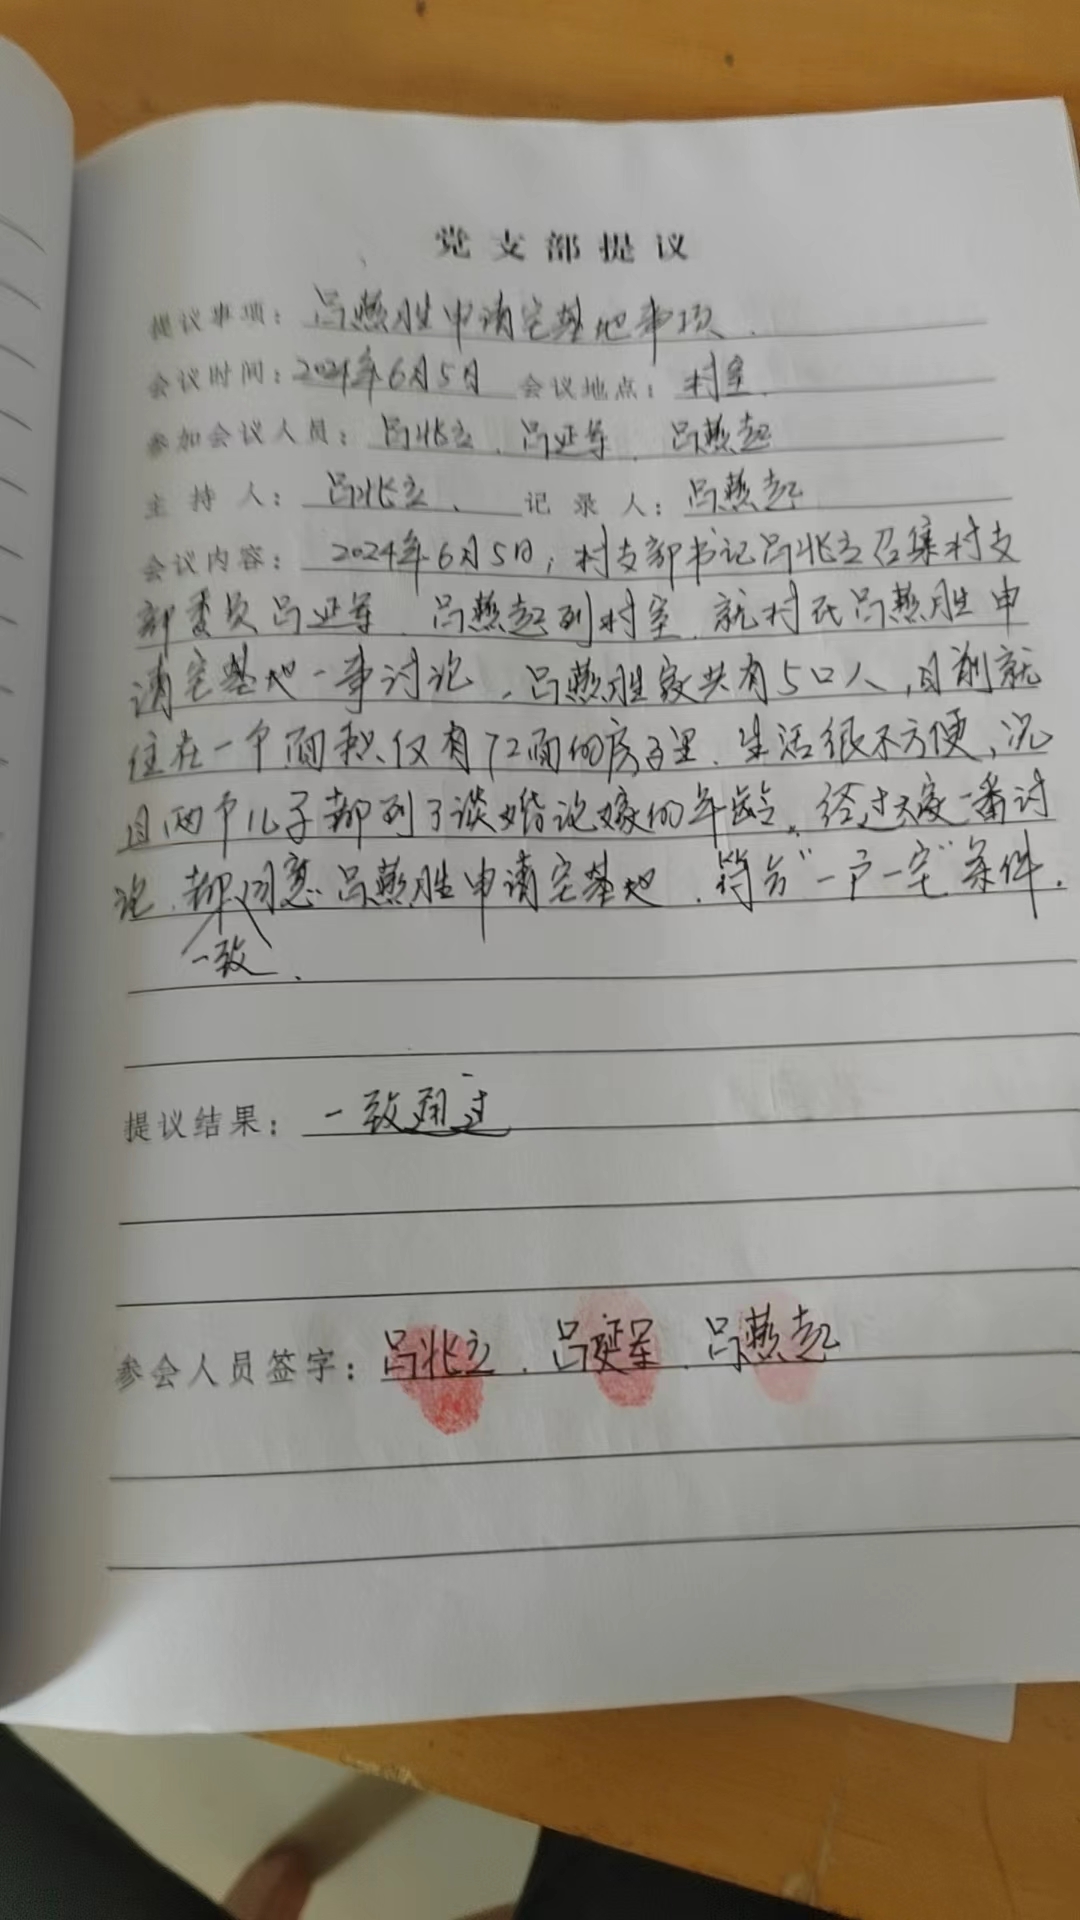 党支部提议
提议事项：吕燕胜申请宅基地事项.
会议时间：2024年6月5日 会议地点：村室.
参加会议人员：吕兆立、吕延军、吕燕起
主持人：吕兆立、 记录人：吕燕起
会议内容：2024年6月5日，村支部书记吕兆立召集村支
部委员吕延军、吕燕起到村室，就村民吕燕胜申
请宅基地一事讨论，吕燕胜家共有5口人，目前就
住在一个面积仅有72面的房子里，生活很不方便，况
且两个儿子都到了谈婚论嫁的年龄，经过大家一番讨
论，都同意吕燕胜申请宅基地，符合“一户一宅”条件.
一致.
提议结果：一致通过
参会人员签字：吕兆立、吕延军、吕燕起